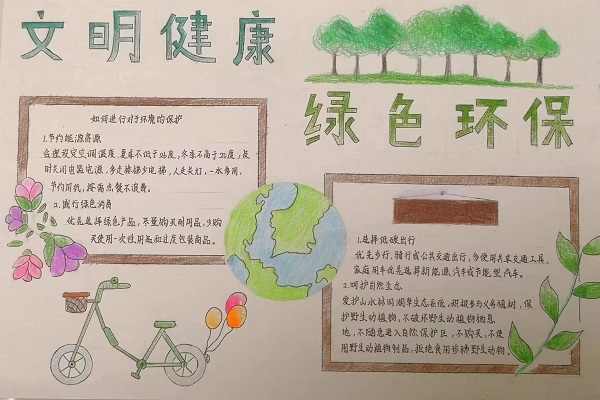 文明健康
绿色环保
如何进行对于环境的保护
1.节约能源资源
合理设定空调温度,夏季不低于26度,冬季不高于20度,及
时关闭电器电源,多走楼梯少电梯,人走关灯,一水多用,
节约用纸,按需点餐不浪费。
2.践行绿色消费
优先选择绿色产品,尽量购买耐用品,少购
买使用一次性用品和过度包装商品。
1.选择低碳出行
优先步行、骑行或公共交通出行,多使用共享交通工具,
家庭用车优先选择新能源汽车或节能型汽车。
2.呵护自然生态
爱护山水林田湖草生态系统,积极参与义务植树,保
护野生动植物,不破坏野生动植物栖息
地,不随意进入自然保护区,不购买、不使
用野生动植物制品,拒绝食用珍稀野生动物。